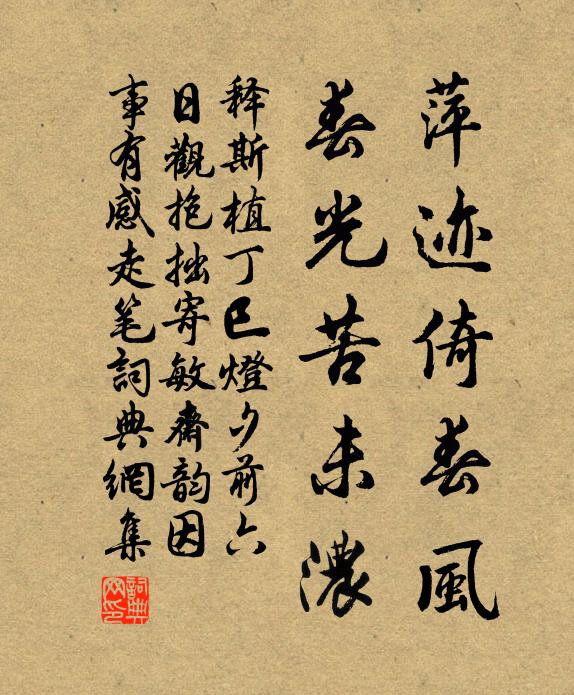 萍迹倚春風
春光苦未濃
释斯植丁巳燈夕前六
日觀抱拙寄敏齋韵因
事有感走笔詞典網集
詞典网印